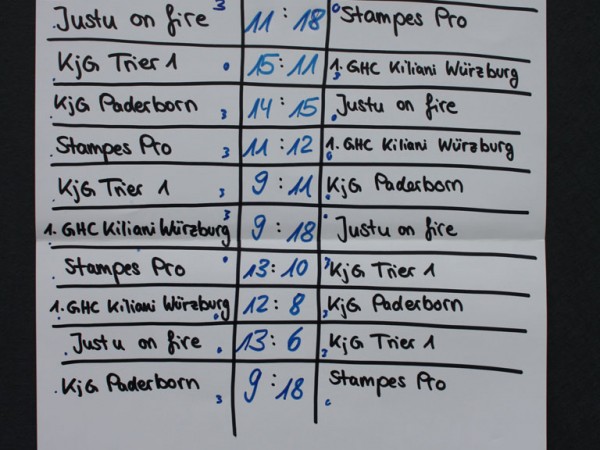 Justu on fire 3 11 : 18 0 Stampes Pro
KjG Trier 1 0 15 : 11 3 1. GHC Kiliani Würzburg
KjG Paderborn 3 14 : 15 0 Justu on fire
Stampes Pro 3 11 : 12 0 1. GHC Kiliani Würzburg
KjG Trier 1 3 9 : 11 KjG Paderborn
1. GHC Kiliani Würzburg 3 9 : 18 Justu on fire
Stampes Pro 0 13 : 10 3 KjG Trier 1
1. GHC Kiliani Würzburg 0 12 : 8 3 KjG Paderborn
Justu on fire 0 13 : 6 3 KjG Trier 1
KjG Paderborn 3 9 : 18 0 Stampes Pro